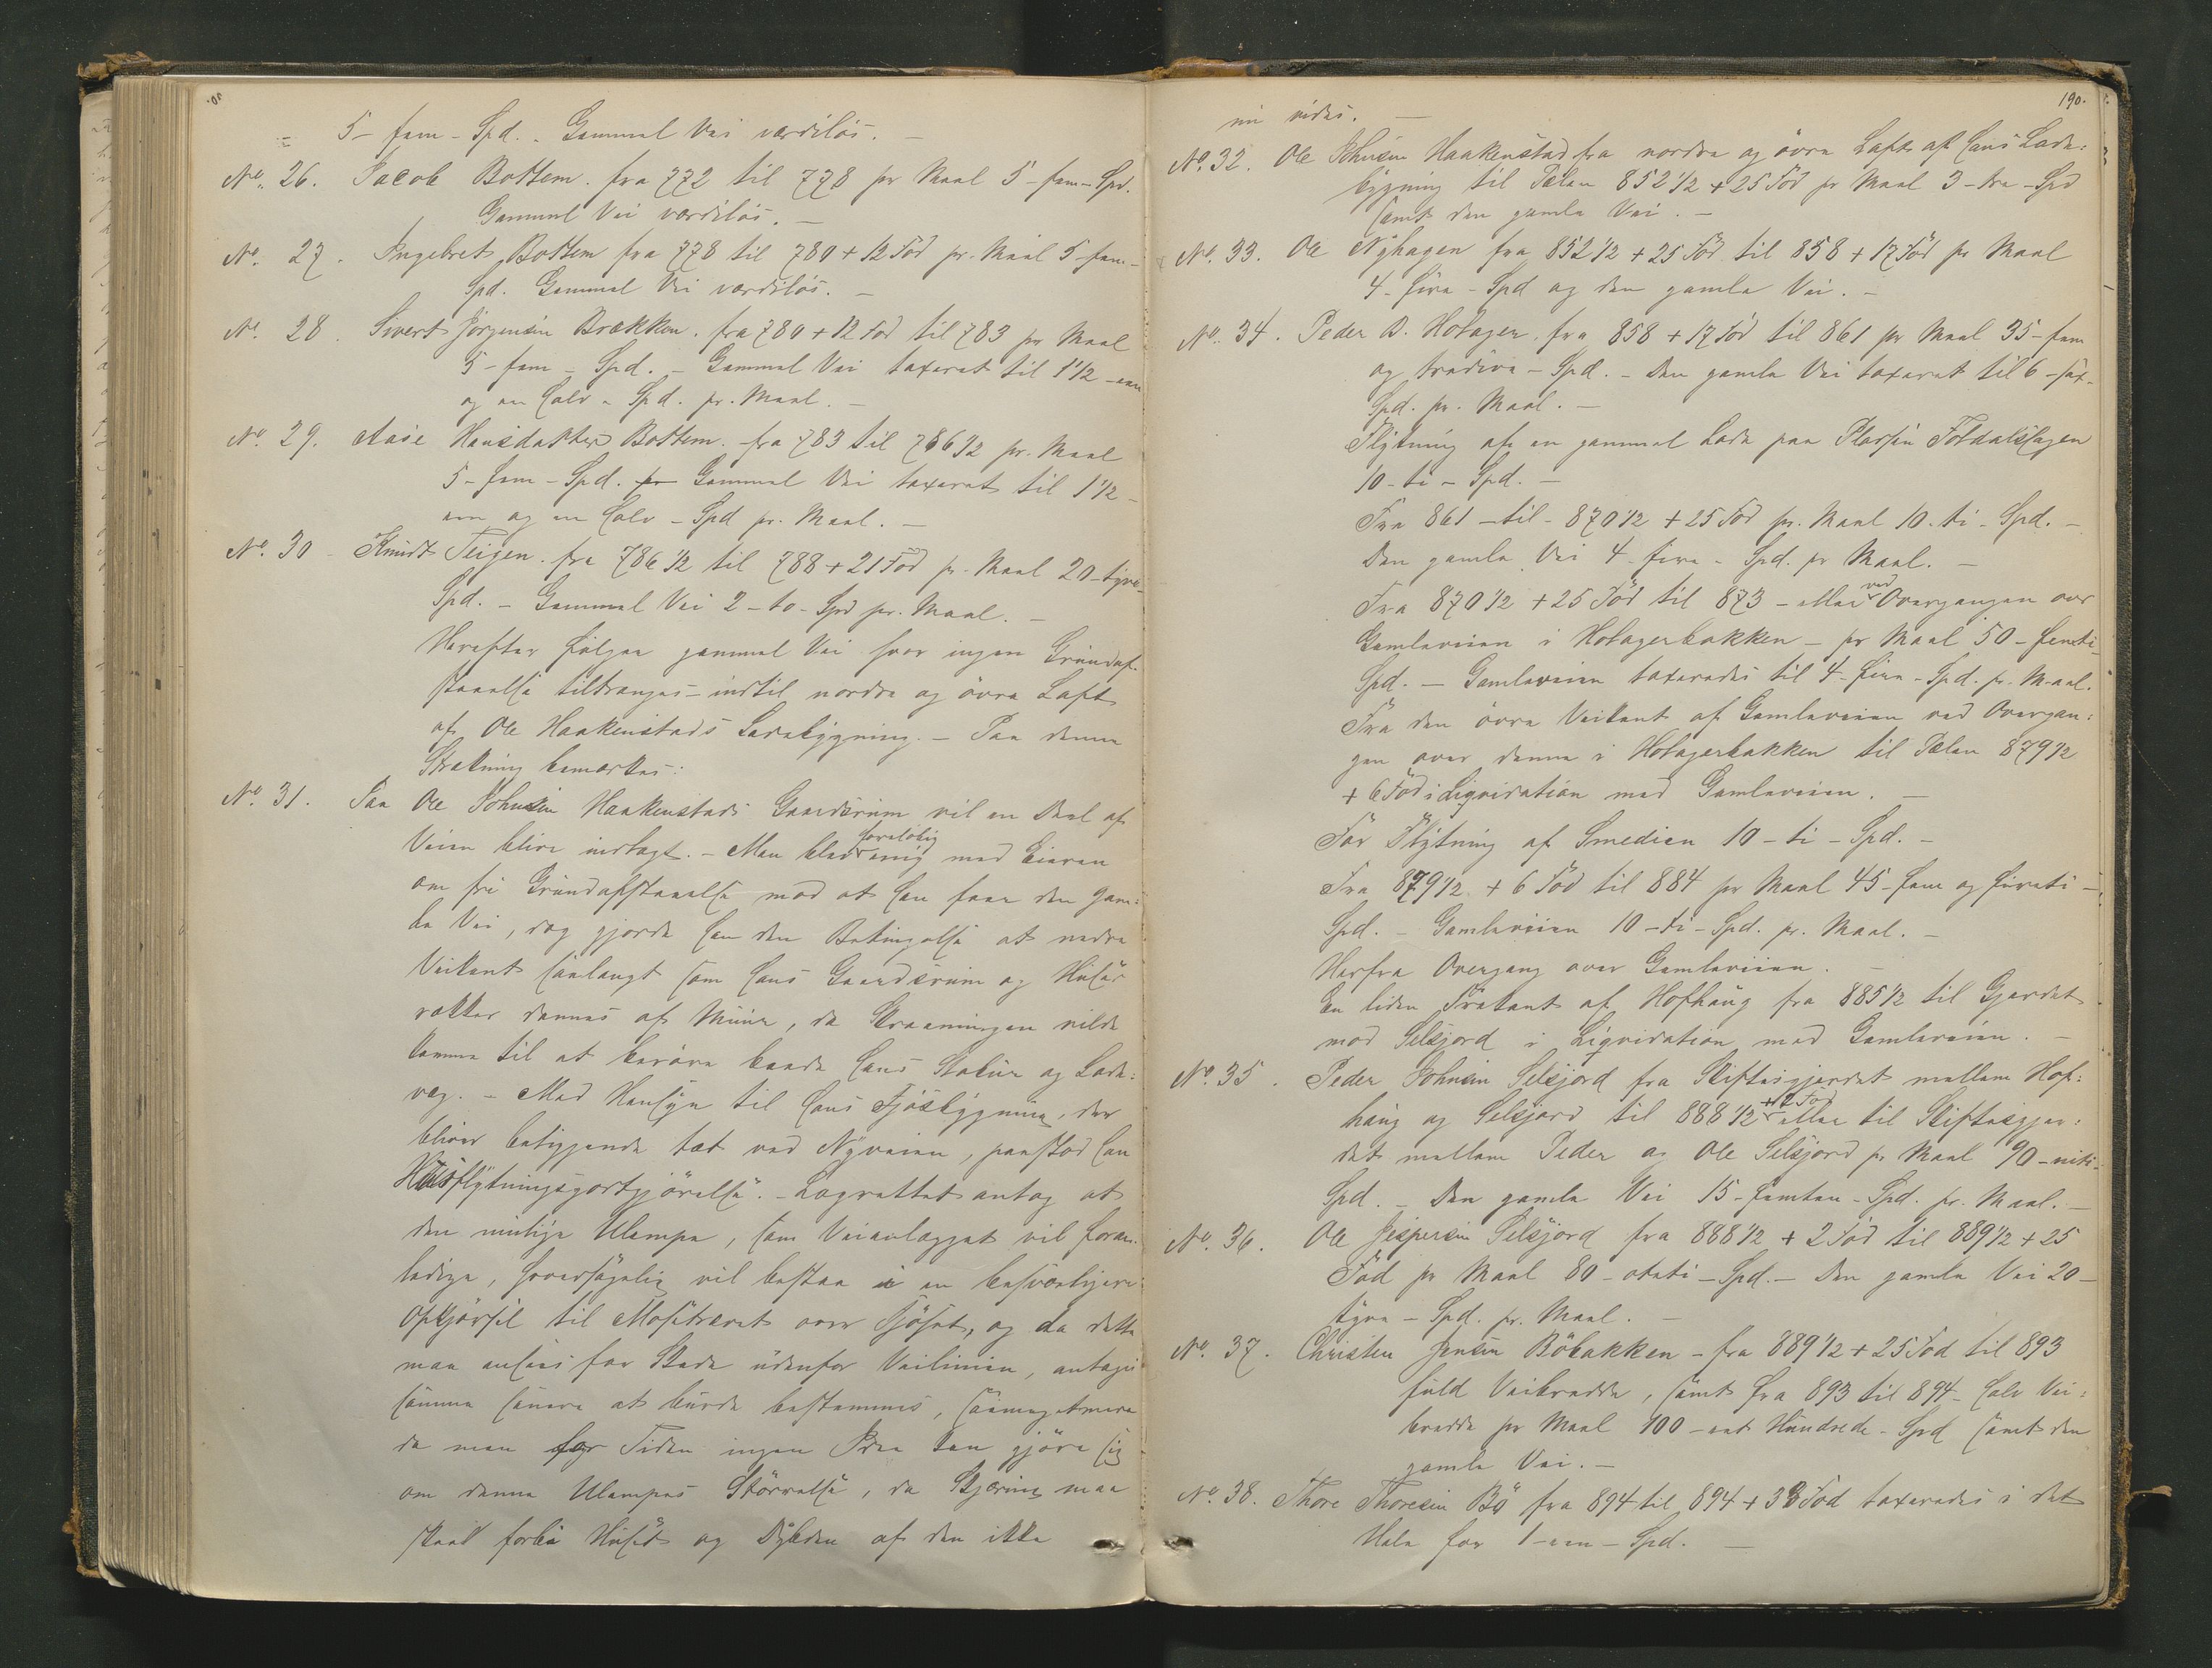 5 - fem - Spd. - Gammel Vei værdiløs. -
No. 26. Jacob Bottem. fra 772 til 778 pr Maal 5 - fem - Spd.
Gammel Vei værdiløs. -
No. 27. Ingebret Bottem fra 778 til 780 + 12 Fod pr. Maal 5 - fem -
Spd. Gammel Vei værdiløs. -
No. 28. Sivert Jörgensen Brækken. fra 780 + 12 Fod til 783 pr Maal
5 - fem - Spd. - Gammel Vei taxeret til 1 1/2 - een
og en halv - Spd. pr. Maal. -
No. 29. Aase Hansdatter Bottem. fra 783 til 786 1/2 pr. Maal
5 - fem - Spd. Gammel Vei taxeret til 1 1/2 -
een og en halv - Spd pr. Maal. -
No. 30 Knudt Teigen. fra 786 1/2 til 788 + 21 Fod pr. Maal 20 - tyve -
Spd. - Gammel Vei 2 - to - Spd pr. Maal. -
Herefter følger gammel Vei hvor ingen Grundaf-
staaelse tiltrænges - indtil nordre og øvre Laft
af Ole Haakenstads Ladebygning. - Paa denne
Strækning bemærkes:
No. 31. Paa Ole Johnsen Haakenstads Gaardsrum vil en Deel af
Veien blive indtagt. - Man blev foreløbig enig med Eieren
om fri Grundafstaaelse mod at han faar den gam-
le Vei, dog gjorde han den Betingelse at nedre
Veikant saalangt som hans Gaardsrum og Huse
rækker dannes af Muur, da Skraaningen vilde
komme til at berøre baade hans Stabur og Lade-
væg. - Med Hensyn til hans Fjøsbygning, der
bliver beliggende tæt ved Nyveien, paastod han
Husflytningsgodtgjørelse. - Lagrettet antog at
den mulige Ulempe, som Veianlægget vil foran-
ledige, hovedsagelig vil bestaa i en besværligere
Opkjørsel til over Fjøset, og da dette
maa ansees for Skade udenfor Veilinien, antages
samme senere at burde bestemmes, saameget mere
da man for Tiden ingen Idee kan gjøre sig
om denne Ulempes Størrelse, da Skjæring maa
skaal forbi Huset og Dybden af den ikke
190.
nu vides. -
No. 32. Ole Johnsen Haakenstad fra nordre og øvre Laft af hans Lade-
bygning til Pælen 852 1/2 + 25 Fod pr Maal 3 - tre - Spd
samt den gamle Vei. -
No. 33. Ole Nyhagen fra 852 1/2 + 25 Fod til 858 + 17 Fod pr Maal
4 - fire - Spd og den gamle Vei. -
No. 34. Peder B. Hobager. fra 858 + 17 Fod til 861 pr Maal 35 - fem
og tredive - Spd. - Den gamle Vei taxeret til 6 - sex -
Spd. pr. Maal. -
Flytning af en gammel Lade paa Pladsen
10 - ti - Spd. -
Fra 861 - til - 870 1/2 + 25 Fod pr. Maal 10 - ti - Spd. -
Den gamle Vei 4 - fire - Spd. pr Maal. -
Fra 870 1/2 + 25 Fod til 873 - eller ved Overgangen over
Gamleveien i Hobagerbakken - pr Maal 50 - femti -
Spd. - Gamleveien taxeredes til 4 - fire - Spd. pr. Maal.
Fra den øvre Veikant af Gamleveien ved Overgan-
gen over denne i Hobagerbakken til Pælen 879 1/2
+ 6 Fod i Liqvidation med Gamleveien. -
For Flytning af Smedien 10 - ti - Spd. -
Fra 879 1/2 + 6 Fod til 884 pr Maal 45 - fem og fireti -
Spd. - Gamleveien 10 - ti - Spd. pr. Maal. -
Herfra Overgang over Gamleveien. -
En liden Trekant af Hofhaug fra 885 1/2 til Gjerdet
mod Selsjord i Liqvidation med Gamleveien. -
No. 35. Peder Johnsen Selsjord fra Skiftesgjerdet mellem Hof-
haug og Selsjord til 888 1/2 + 2 Fod eller til Skiftesgjer-
det mellem Peder og Ole Selsjord pr Maal 90 - niti -
Spd. - Den gamle Vei 15 - femten - Spd. pr. Maal. -
No. 36. Ole Jespersen Selsjord fra 888 1/2 + 2 Fod til 889 1/2 + 25
Fod pr Maal 80 - otteti - Spd. - Den gamle Vei 20 -
tyve - Spd. pr. Maal. -
No. 37. Christen Jensen Böbakken - fra 889 1/2 + 25 Fod til 893
fuld Veibredde, samt fra 893 til 894 - halv Vei-
bredde pr Maal 100 - eet Hundrede - Spd samt den
gamle Vei. -
No. 38. Thore Thoresen Bö fra 894 til 894 + 38 Fod taxeredes i det
Hele for 1 - een - Spd. -